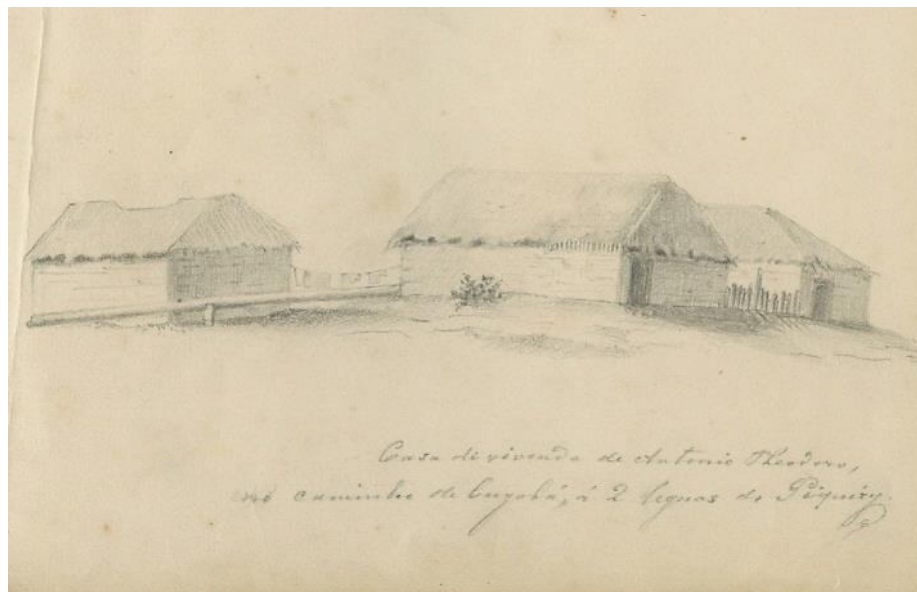 Casa de vivenda de Antonio Theodoro,
no caminho de Cuyabá, á 2 leguas do Piquiry.